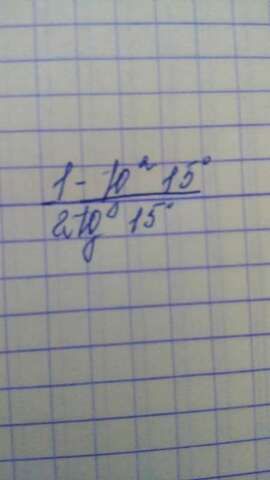 1 - tg² 15°
2 tg 15°